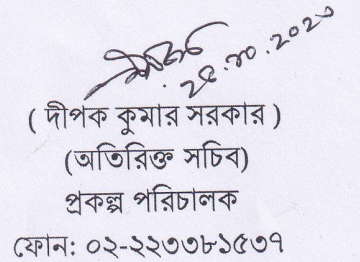 ২৫.১০.২০২৩
( দীপক কুমার সরকার )
(অতিরিক্ত সচিব)
প্রকল্প পরিচালক
ফোন: ০২-২২৩৩৮১৫৩৭